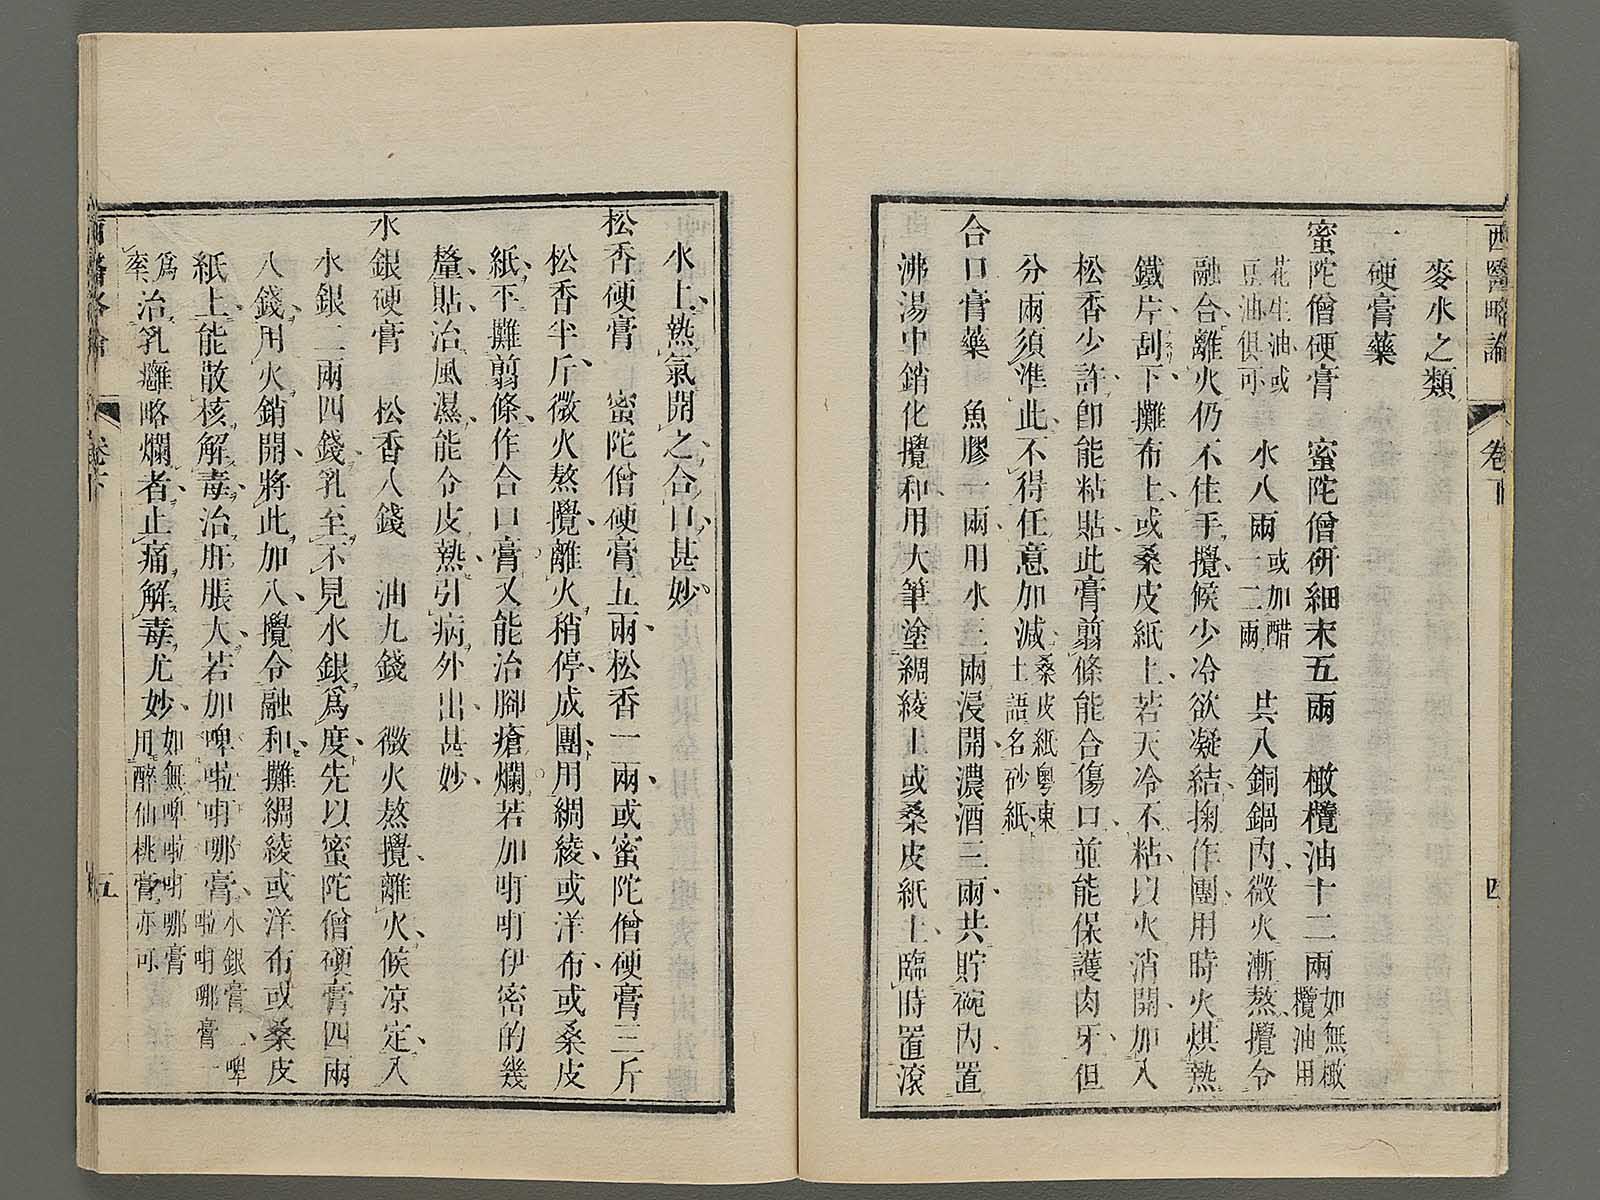 西醫略論
卷下
四
麥水之類
一硬膏藥
蜜陀僧硬膏 蜜陀僧研細末五兩 橄欖油十二兩如無橄欖油用
花生油或豆油俱可 水八兩或加醋一二兩 共入銅鍋內微火漸熬攪令
融合離火仍不住手攪候少冷欲凝結掬作團用時火烘熱
鐵片刮下攤布上或桑皮紙上若天冷不粘以火消開加入
松香少許卽能粘貼此膏剪條能合傷口並能保護肉牙但
分兩須準此不得任意加減桑皮紙粵東土語名砂紙
合口膏藥 魚膠一兩用水三兩浸開濃酒三兩共貯碗內置
沸湯中銷化攪和用大筆塗綢綾上或桑皮紙上臨時置滾
水上熱氣開之合口甚妙
松香硬膏 蜜陀僧硬膏五兩松香一兩或蜜陀僧硬膏三斤
松香半斤微火熬攪離火稍停成團用綢綾或洋布或桑皮
紙平攤剪條作合口膏又能治腳瘡爛若加㕶㕶伊密的幾
釐貼治風濕能令皮熱引病外出甚妙
水銀硬膏 松香八錢 油九錢 微火熬攪離火候凉定入
水銀二兩四錢乳至不見水銀爲度先以蜜陀僧硬膏四兩
八錢用火銷開將此加入攪令融和攤綢綾或洋布或桑皮
紙上能散核解毒治肝脹大若加啤啦㕶哪膏水銀膏一啤啦㕶哪膏一
爲率治乳癰略爛者止痛解毒尤妙如無啤啦㕶哪膏用醉仙桃膏亦可
西醫略論
卷下
五